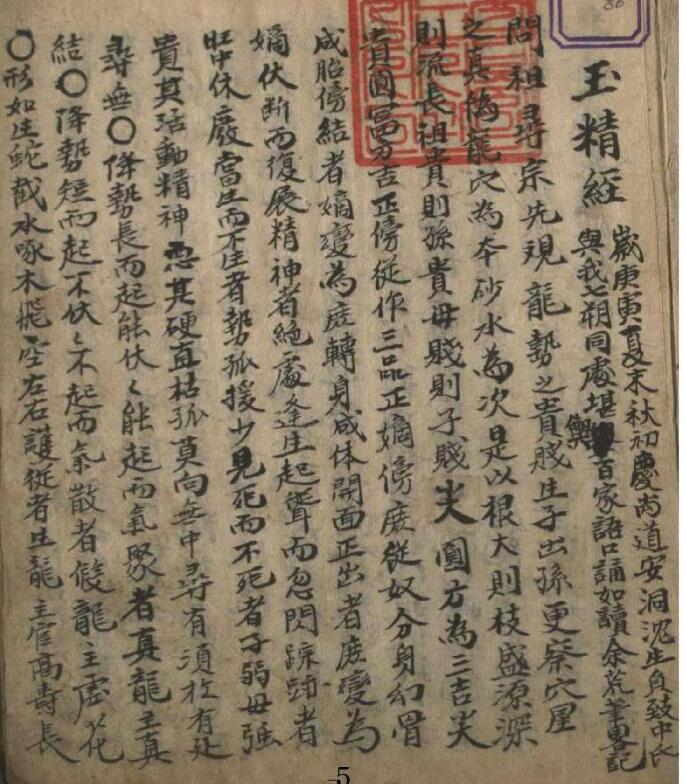 玉精經
歲庚寅夏末秋初慶尚道安洞沈生員致中氏
與我七朔同處堪輿百家語口誦如讀余荒筆畧記
問祖尋宗先現龍勢之貴賤生子出孫更察穴星
之真偽龍穴為本砂水為次是以根大則枝盛源深
則流長祖貴則孫貴母賤則子賤尖圓方為三吉尖
貴圓富方吉正傍從作三品正嫡傍庶從奴分身幻骨
成胎傍結者嫡變為庶轉身成体開面正出者庶變為
嫡伏断而復展精神者絕處逢生起聳而忽閃踪跡者
旺中休廢當生而不生者勢孤援少見死而不死者子弱母強
貴其活動精神忌其硬直枯孤莫向無中尋有須於有处
尋無〇降勢長而起能伏〻能起而氣聚者真龍主真
結〇降勢短而起不伏〻不起而氣散者假龍主虛花
〇形如生蛇戲水啄木飛空左右護從者生龍主官高壽長
5